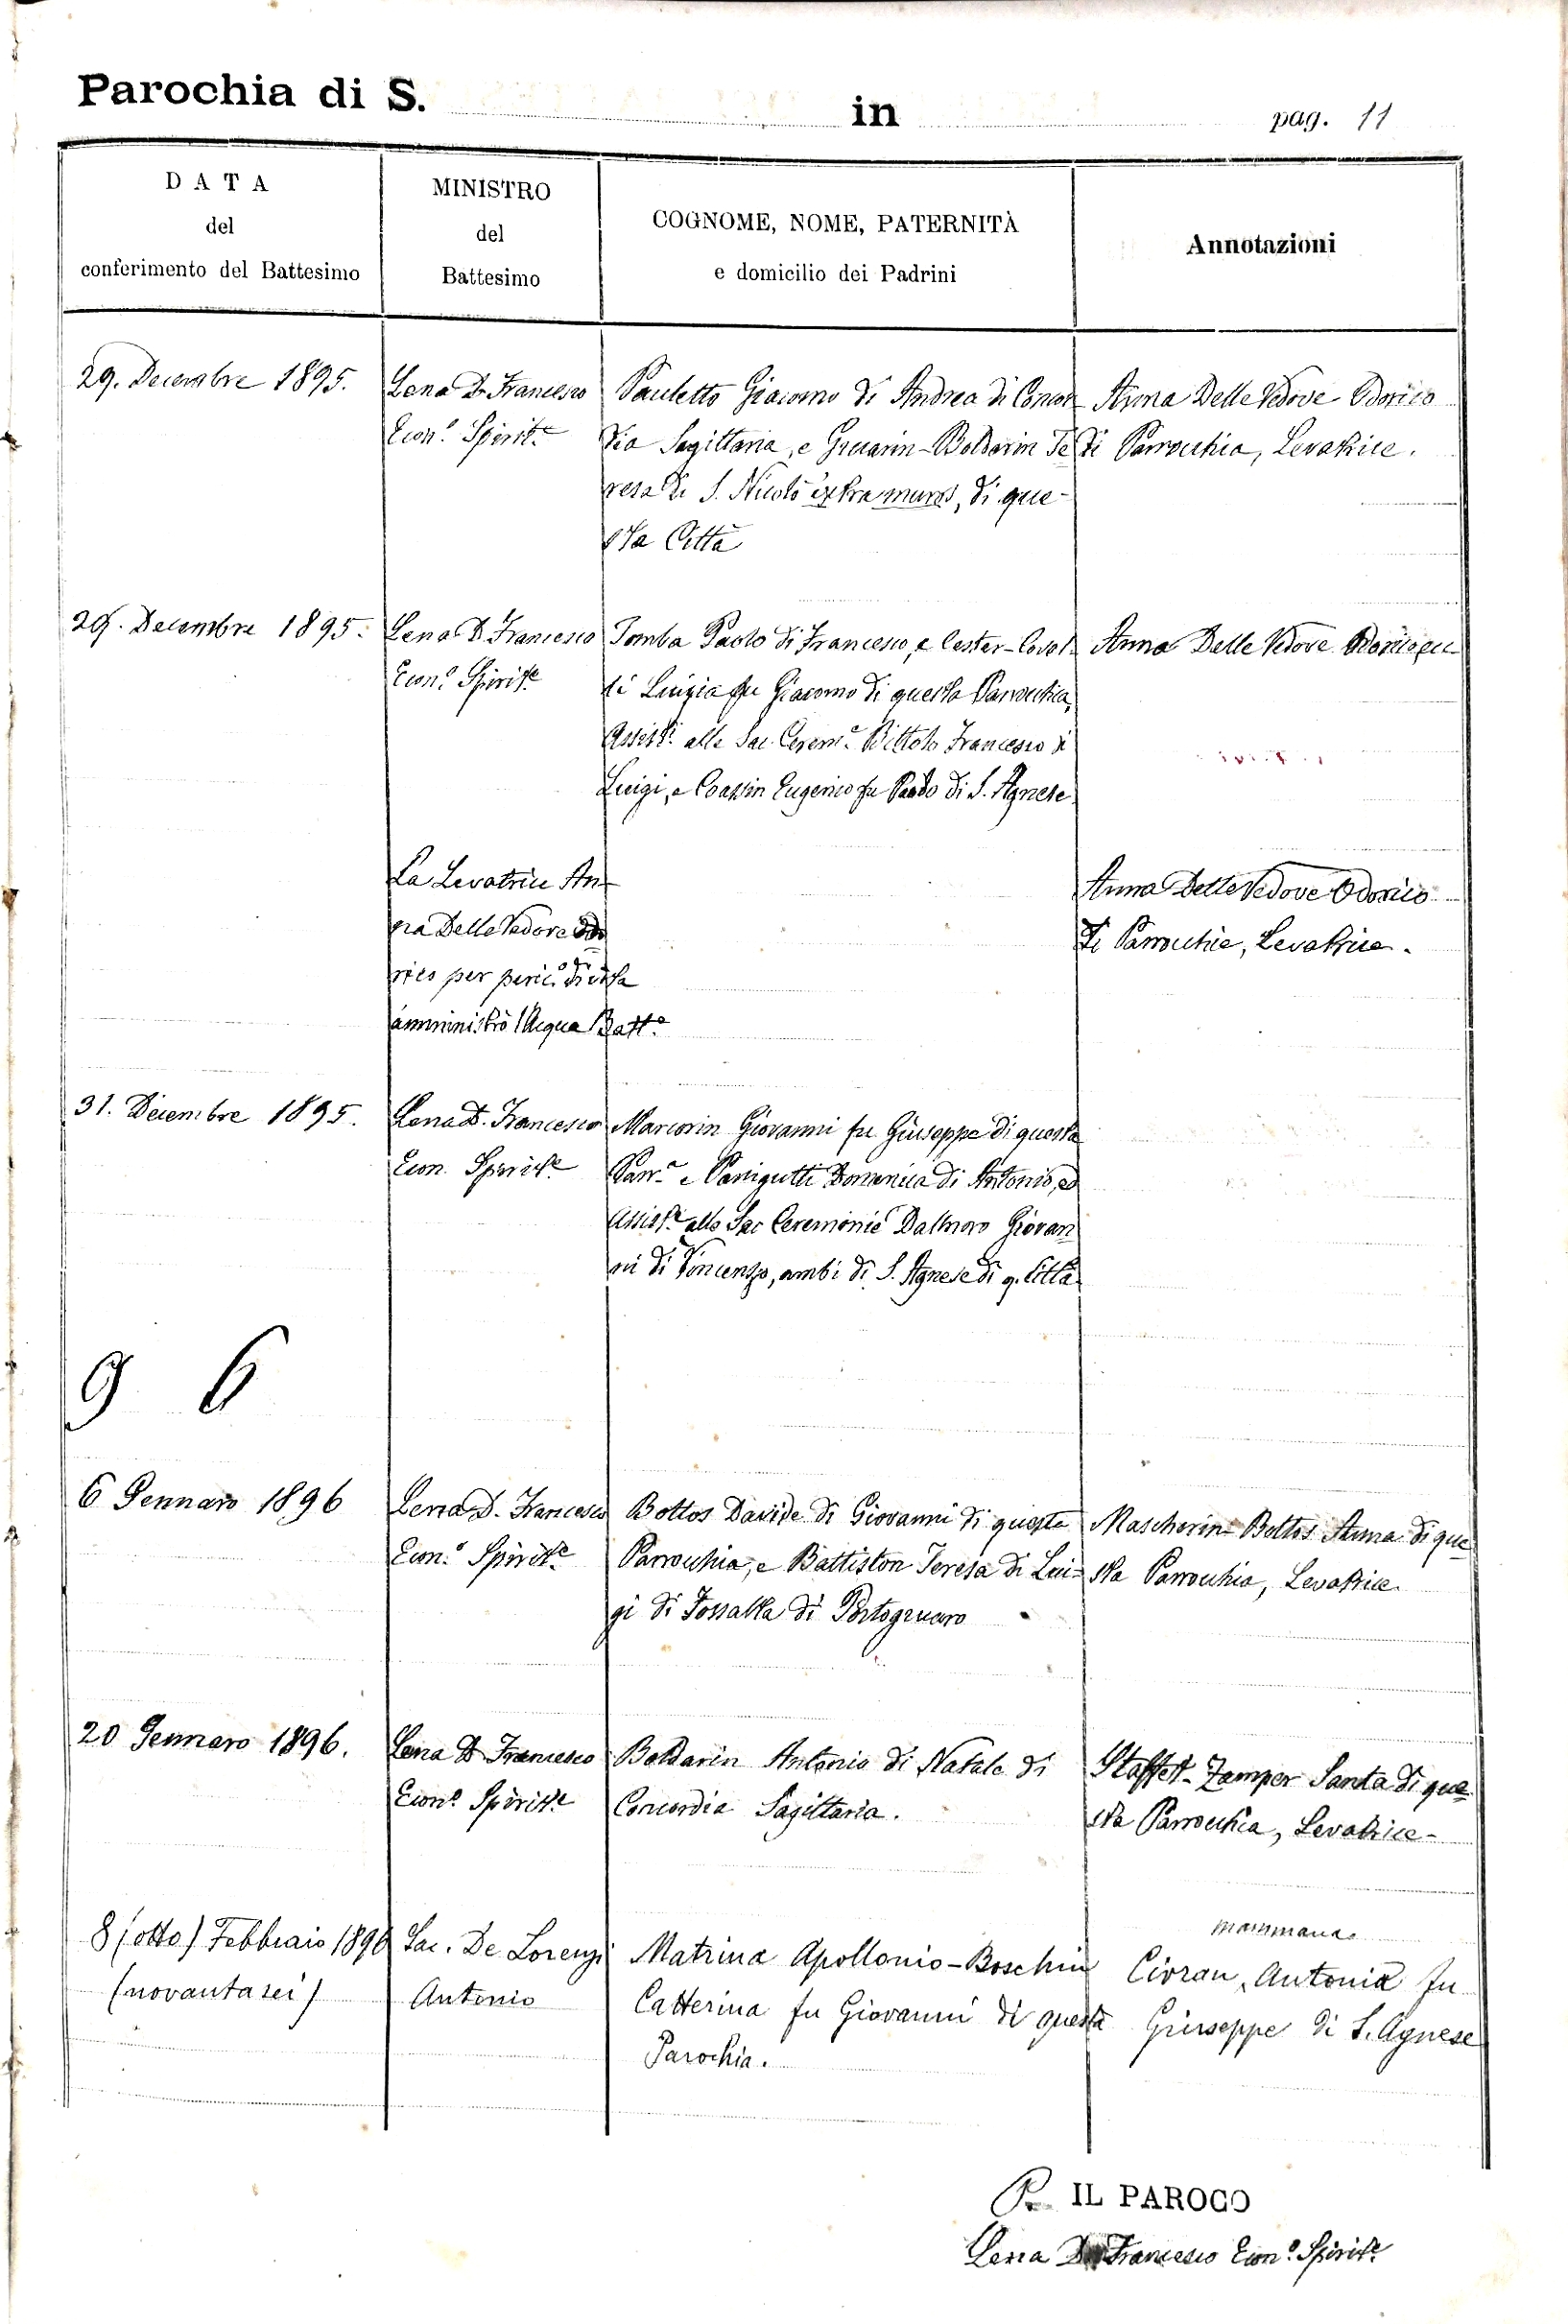 Parochia di S. in pag. 11
DATA
del
conferimento del Battesimo
MINISTRO
del
Battesimo
COGNOME, NOME, PATERNITÀ
e domicilio dei Padrini
Annotazioni
29. Decembre 1895.
Lena D. Francesco
Econ.º Spirit.e
Pauletto Giacomo di Andrea di Concor
dia Sagittaria, e Gruarin-Boldarin Te
resa di S. Nicolò extra muros, di que-
sta Città
Anna Delle Vedove Odorico
di Parrocchia, Levatrice.
29. Decembre 1895.
Lena D. Francesco
Econ.º Spirit.e
Tomba Paolo di Francesco, e Cester-Covol
ti Luigia fu Giacomo di questa Parrocchia,
Assist.i alle Sac. Cerem.e Bittolo Francesco di
Luigi, e Coassin Eugenio fu Paolo di S. Agnese
Anna Delle Vedove Odorico, ecc
La Levatrice An-
na Delle Vedove Odo
rico per peric.º di vita
amministrò l'Acqua Batt.e
Anna Delle Vedove Odorico
di Parrocchia, Levatrice.
31. Decembre 1895.
Lena D. Francesco
Econ. Spirit.e
Marcorin Giovanni fu Giuseppe di questa
Parr.a e Panigutti Domenica di Antonio, ed
Assist.e alle Sac Ceremonie Dalmoro Giovan
ni di Vincenzo, ambi di S. Agnese di q. Città
96
6 Gennaro 1896
Lena D. Francesco
Econ.º Spirit.e
Bottos Davide di Giovanni di questa
Parrocchia, e Battiston Teresa di Lui-
gi di Fossalta di Portogruaro
Mascherin-Bottos Anna di que
sta Parrocchia, Levatrice.
20 Gennaro 1896.
Lena D. Francesco
Econ.º Spirit.e
Boldarin Antonio di Natale di
Concordia Sagittaria.
Staffet-Zamper Santa di que
sta Parrocchia, Levatrice-
8 (otto) Febbraio 1896
(novantasei)
Sac. De Lorenzi
Antonio
Matrina Apollonio-Boschin
Catterina fu Giovanni di questa
Parochia.
mammana
Civran Antonia fu
Giuseppe di S. Agnese
P. IL PAROCO
Lena D. Francesco Econ.º Spirit.e